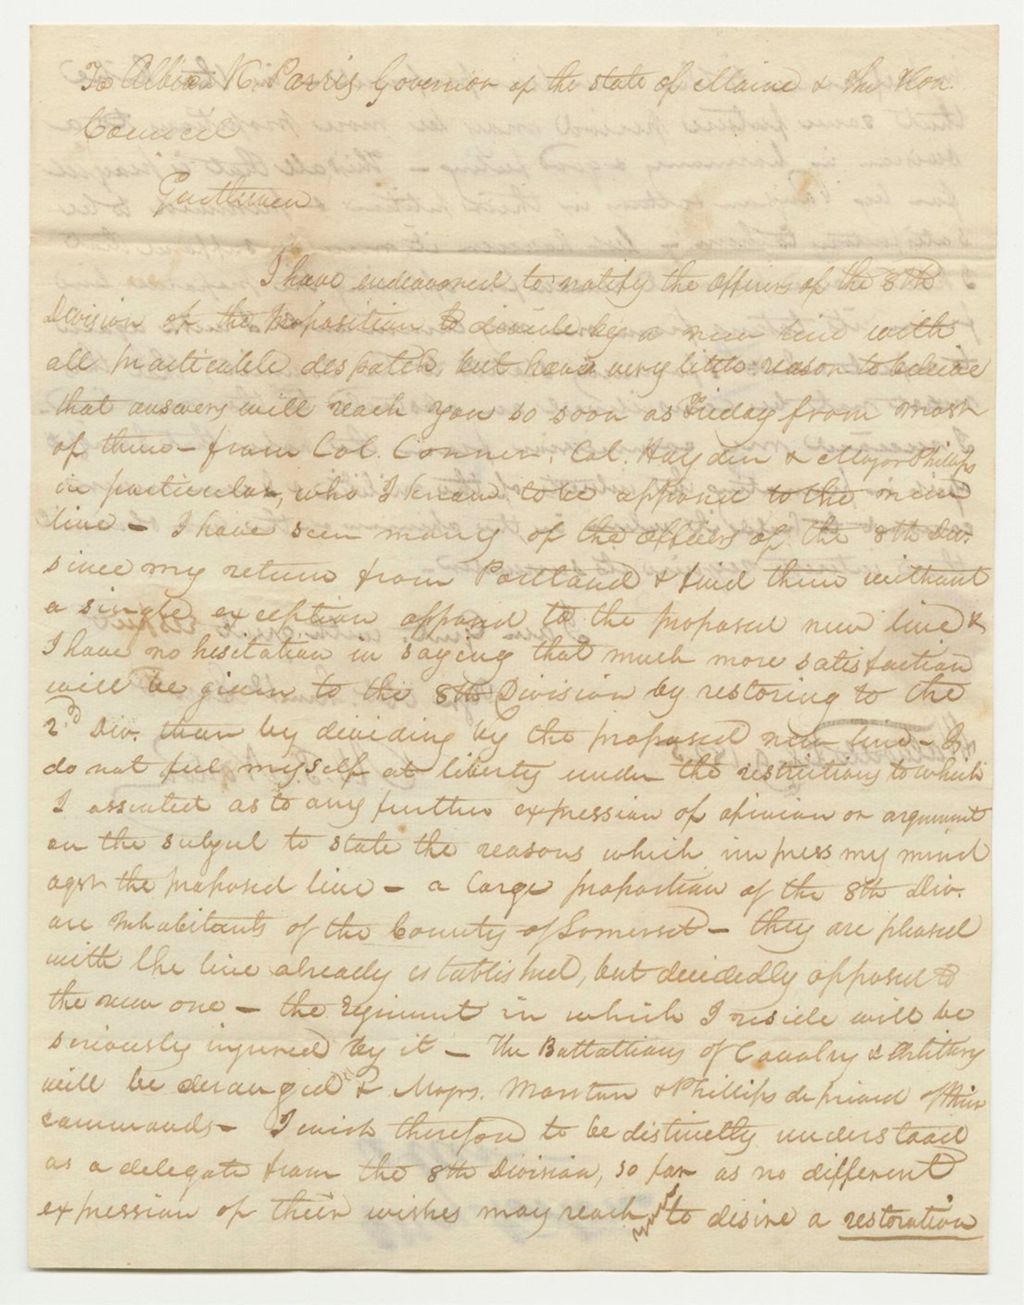 To Albion K Parris Governor of the state of Maine & the Hon.
Council
Gentlemen
I have endeavored to notify the officers of the 8th
Division of the proposition to divide by a new line with
all practicable despatch, but have very little reason to believe
that answers will reach you so soon as Friday from most
of them - from Col. Conner, Col. Hayden & Major Phillips
in particular, who I know to be opposed to the new
line - I have seen many of the officers of the 8th Div.
since my return from Portland & find them without
a single exception opposed to the proposed new line &
I have no hesitation in saying that much more satisfaction
will be given to the 8th Division by restoring to the
2nd Div. than by dividing by the proposed new line - I
do not feel myself at liberty under the restrictions to which
I assented as to any further expression of opinion or argument
on the subject to state the reasons which impress my mind
agst the proposed line - a large proportion of the 8th Div.
are inhabitants of the County of Somerset - they are pleased
with the line already established, but decidedly opposed to
the new one - the regiment in which I reside will be
seriously injured by it - The Battallions of Cavalry & Artillery
will be deranged & Majrs. Marston & Phillips deprived of their
commands - I wish therefore to be distinctly understood
as a delegate from the 8th Division, so far as no different
expression of their wishes may reach you to desire a restoration